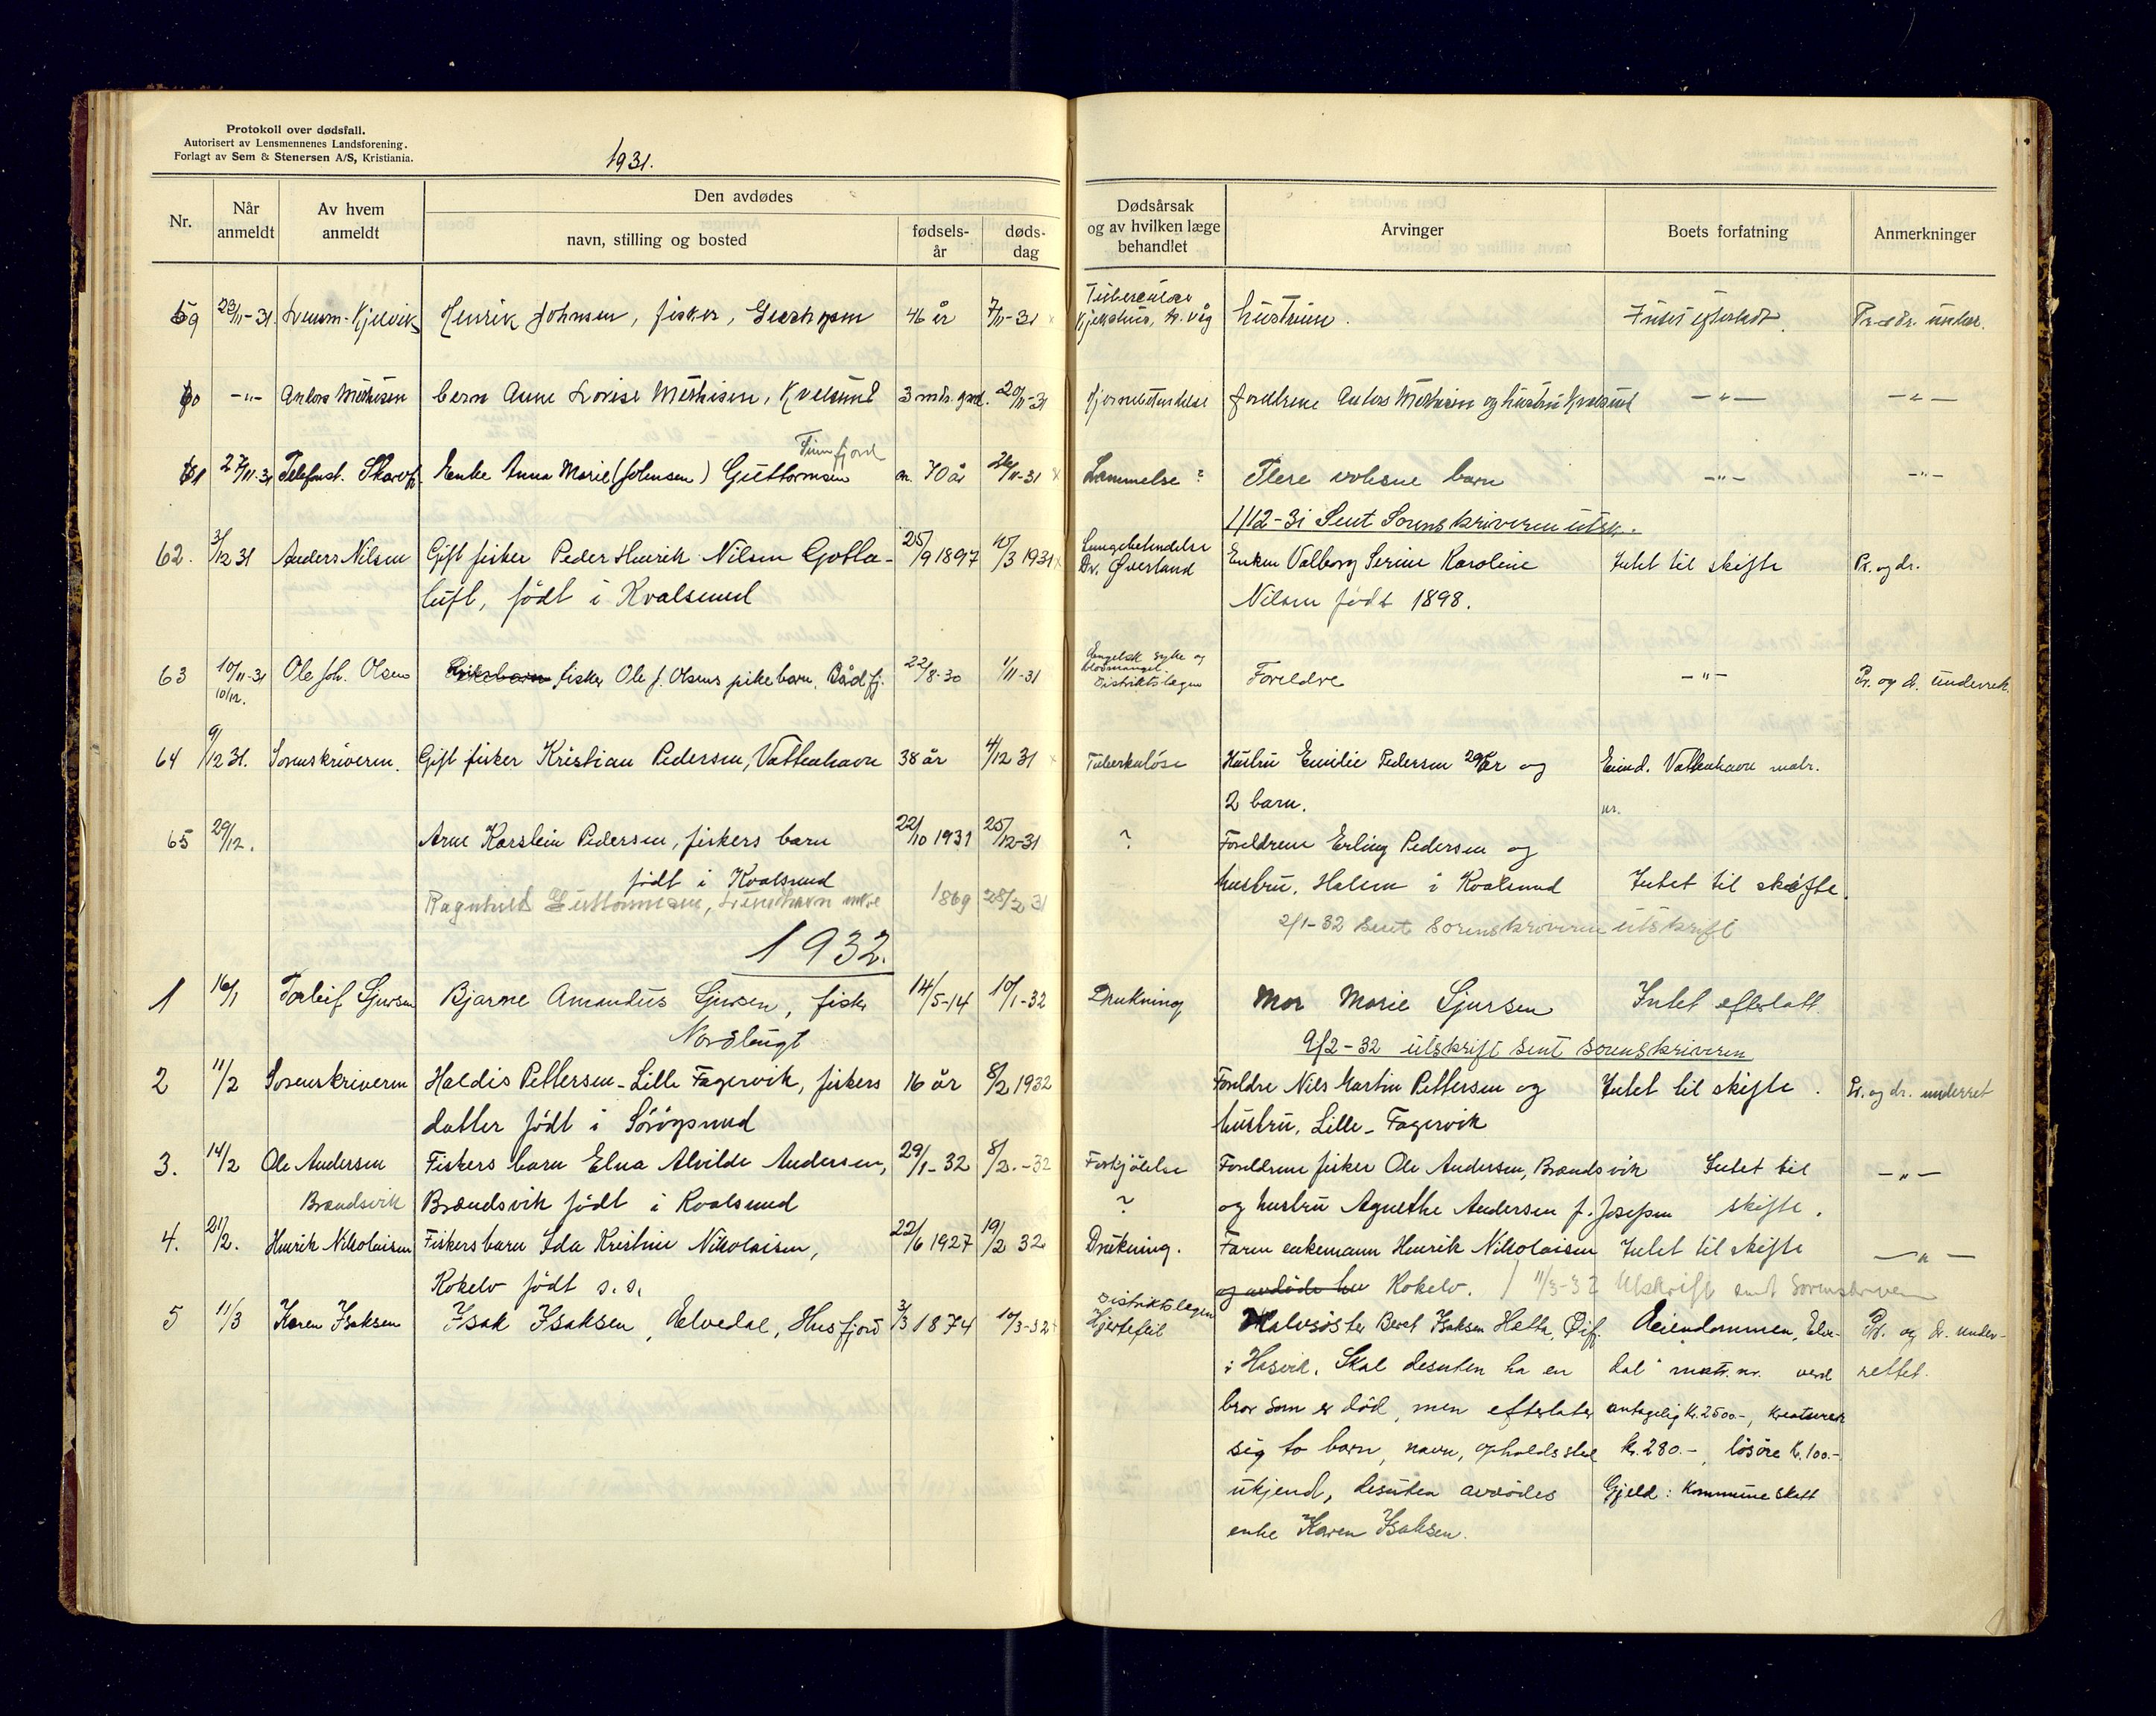 Protokoll over dødsfall.
Autorisert av Lensmennenes Landsforening.
Forlagt av Sem & Stenersen A/S, Kristiania.
1931.
Nr.
Når anmeldt
Av hvem anmeldt
Den avdødes
navn, stilling og bosted
fødsels-år
døds-dag
Dødsårsak og av hvilken læge behandlet
Arvinger
Boets forfatning
Anmerkninger
59 23/11-31. Lensm. Kjelvik Henrik Johnsen, fisker, 46 år 7/11-31 Tuberkulose hustruen. Intet efterladt. Pr. & Dr. under.
60 -"- Anders Mathisen barn Anne Lovise Mathisen, Kvalsund 3 mdr. gml. 20/11-31 Hjernebetendelse foreldrene Anders Mathisen og hustru Kvalsund -"- -"-
Finnfjord
61 27/11.31 Telefonst. Skarvfj. Enke Anna Marie (Johnsen) Guttormsen ca. 70 år 26/11-31 Lammelse? Flere voksne barn -"- -"-
1/12-31 Sent Sorenskriveren utsk.
62. 3/12 31 Anders Nilsen Gift fisker Peder Henrik Nilsen Gotta- 25/9 1897 10/3 1931 Lungebetendelse Dr. Øverland Enken Valborg Serine Karoline Intet til skifte Pr. og dr.
luft, født i Kvalsund Nilsen født 1898.
63 10/11-31 10/12. Ole Joh. Olsen fisker Ole J. Olsens pikebarn, Bådfj. 22/8-30 1/11-31 Engelsk syke og blodmangel. Distriktslægen Foreldre -"- Pr. og dr. underret.
64 9/12 31. Sorenskriveren. Gift fisker Kristian Pedersen, Vattenhavn 38 år 4/12 31 Tuberkuløse Hustru Emilie Pedersen 29 år og Eiend. Vattenhavn matr.
2 barn. nr.
65 29/12. Arne Karstein Pedersen, fiskers barn 22/10 1931 25/12-31 ? Foreldrene Erling Pedersen og
født i Kvalsund hustru, Halsen i Kvalsund Intet til skifte.
Ragnhild Guttormsen, 1869 28/2 31
2/1-32 Sent Sorenskriveren utskrift
1932.
1 16/1 Torleif Sjursen Bjarne Amandus Sjursen, fisker 14/5-14 10/1-32 Drukning Mor Marie Sjursen Intet efterlatt.
9/2-32 utskrift sent sorenskriveren
2 11/2 Sorenskriveren Haldis Pettersen - Lille Fagervik, fiskers 16 år 8/2 1932 Foreldre Nils Martin Pettersen og Intet til skifte. Pr. og dr. underret
datter født i Sörøysund hustru, Lille-Fagervik
3. 14/2 Ole Andersen Fiskers barn Elna Alvilde Andersen, 29/1-32 8/2.-32 Forkjölelse Foreldrene fisker Ole Andersen, Brandsvik Intet til -"-
Brandsvik Brandsvik født i Kvalsund ? og hustru Agnethe Andersen f. Josefsen skifte.
4. 21/2. Henrik Nikolaisen Fiskersbarn Ida Kristine Nikolaisen, 22/6 1927 19/2 32 Drukning. Faren enkemann Henrik Nikolaisen Intet til skifte -"-
Kokelv født s.s. og avdøde hu Kokelv. / 11/3-32 Utskrift sent Sorenskriveren
5 11/3 Karen Isaksen Isak Isaksen, Elvedal, Husfjord 3/3 1874 10/3-32 Distriktslægen Hjertefeil Halvsøster Beret Isaksen Hætta, Øifj. Eiendommen, Elve- Pr. og dr. under-
i Hasvik. Skal desuten ha en dal" matr. nr. verd rettet.
bror som er död, men efterlater antagelig kr. 2500.-, kreaturer
sig to barn, navn, opholdssted kr. 280.-, lösöre kr. 100.-
ukjend, desuten avdödes Gjeld: Kommuneskatt
enke Karen Isaksen.